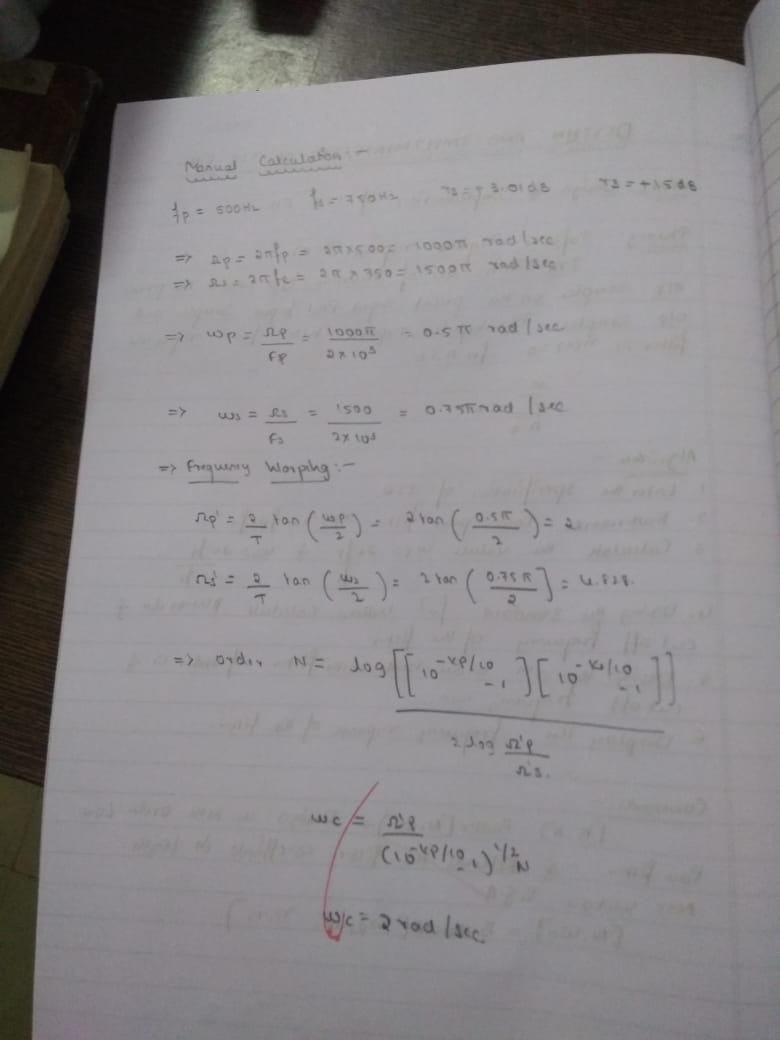 Manual Calculation :-
fp = 500Hz fs = 750Hz rp = + 3.01dB rs = + 15dB
=> Ωp = 2πfp = 2π×500 = 1000π rad/sec
=> Ωs = 2πfs = 2π × 750 = 1500π rad/sec.
=> wp = Ωp/Fp = 1000π/2×10³ = 0.5π rad/sec
=> ws = Ωs/Fs = 1500/2×10³ = 0.75π rad/sec
=> Frequency Warping :-
Ωp' = 2/T tan (wp/2) = 2tan (0.5π/2) = 2
Ωs' = 2/T tan (ws/2) = 2 tan (0.75π/2] = 4.828.
=> order N = log[[10^-kp/10 -1][10^-ks/10 -1]]
2log Ω'p/Ω's.
wc = Ω'p/(10^-kp/10 -1)^1/2N
wc = 2 rad/sec.